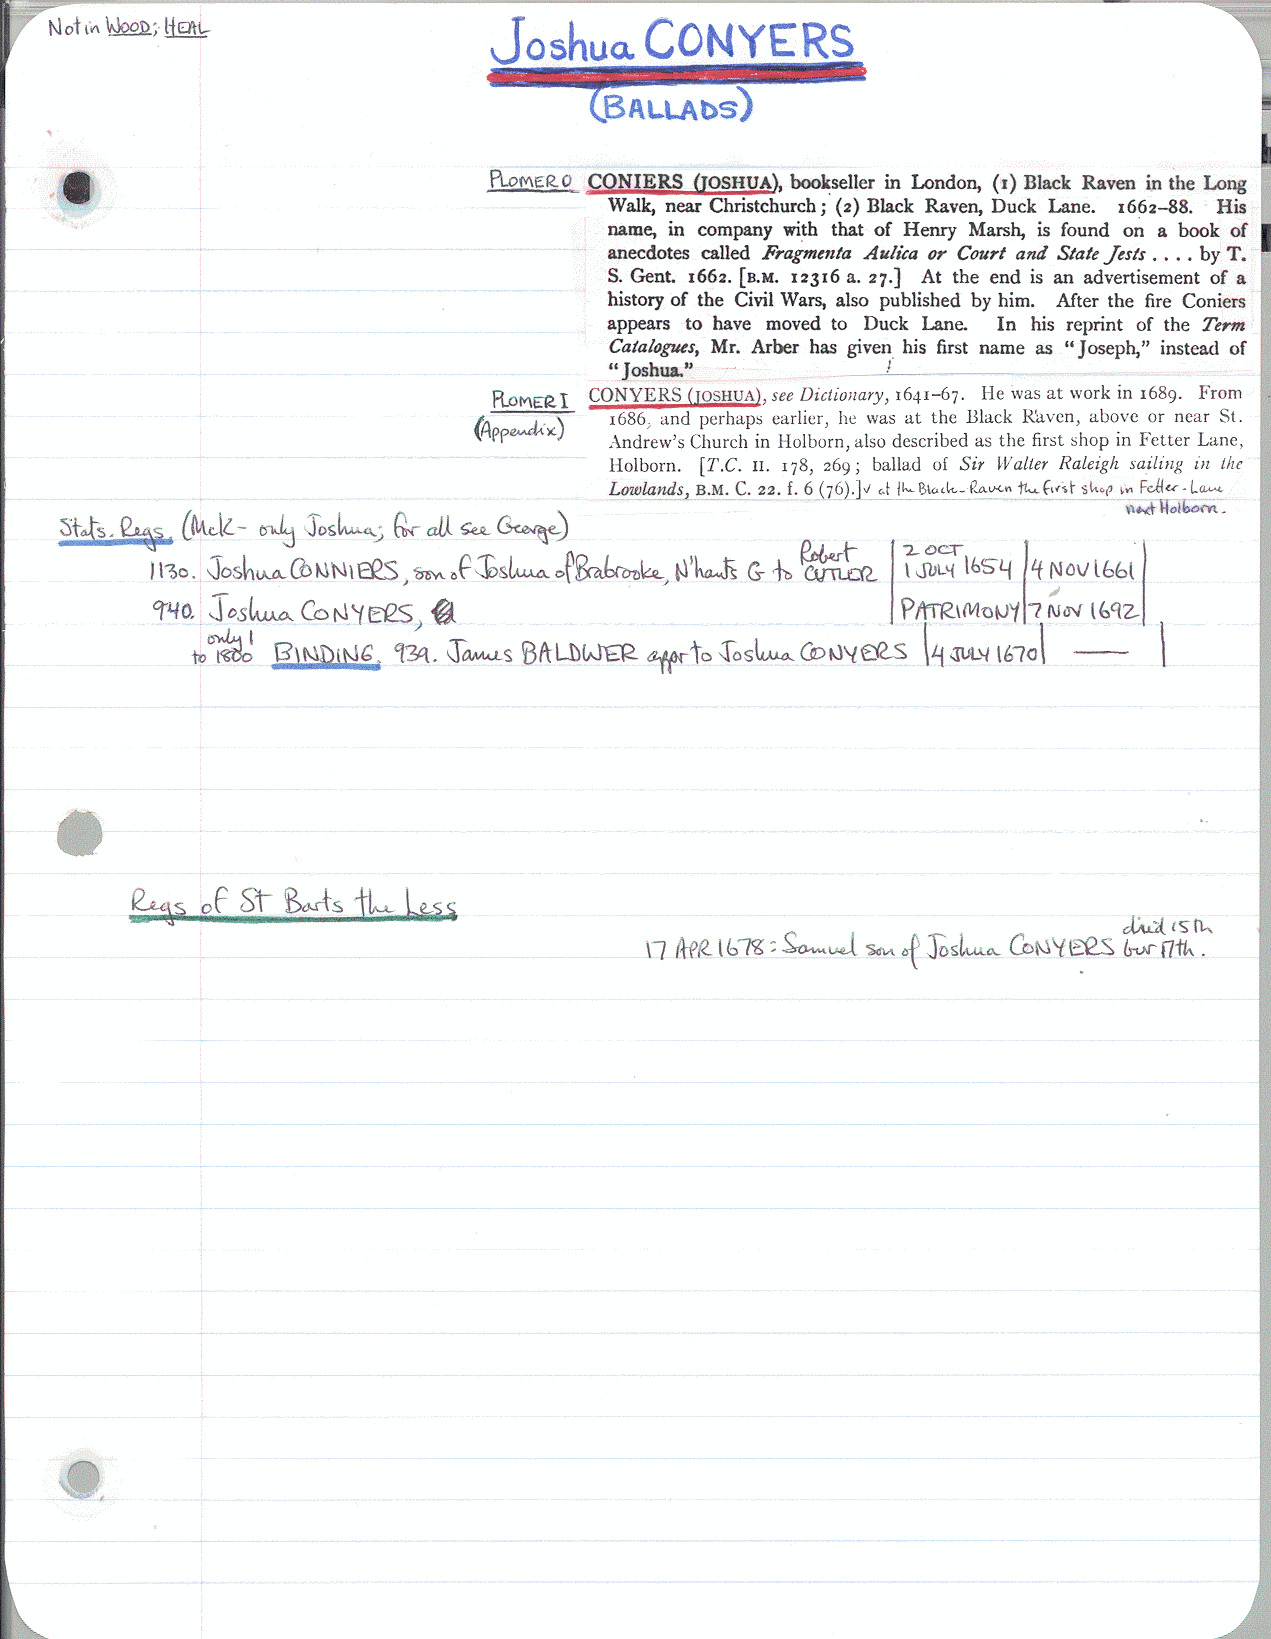 Not in WOOD; HEAL
Joshua CONYERS
(BALLADS)
PLOMER O CONIERS (JOSHUA), bookseller in London, (1) Black Raven in the Long
Walk, near Christchurch; (2) Black Raven, Duck Lane. 1662–88. His
name, in company with that of Henry Marsh, is found on a book of
anecdotes called Fragmenta Aulica or Court and State Jests . . . . by T.
S. Gent. 1662. [B.M. 12316 a. 27.] At the end is an advertisement of a
history of the Civil Wars, also published by him. After the fire Coniers
appears to have moved to Duck Lane. In his reprint of the Term
Catalogues, Mr. Arber has given his first name as "Joseph," instead of
"Joshua."
PLOMER I CONYERS (JOSHUA), see Dictionary, 1641–67. He was at work in 1689. From
(Appendix) 1686, and perhaps earlier, he was at the Black Raven, above or near St.
Andrew's Church in Holborn, also described as the first shop in Fetter Lane,
Holborn. [T.C. II. 178, 269; ballad of Sir Walter Raleigh sailing in the
Lowlands, B.M. C. 22. f. 6 (76).] at the Black-Raven the first shop in Fetter-Lane
next Holborn.
Stats. Regs. (McK - only Joshua; for all see George)
1130. Joshua CONNIERS, son of Joshua of Brabrooke, N'hants G to Robert CUTLER 2 OCT 1 JULY 1654 4 NOV 1661
940. Joshua CONYERS, PATRIMONY 7 NOV 1692
only 1 to 1800 BINDING. 939. James BALDWER appr to Joshua CONYERS 4 JULY 1670 ——
Regs of St Barts the Less
died 15th
17 APR 1678: Samuel son of Joshua CONYERS bur 17th.